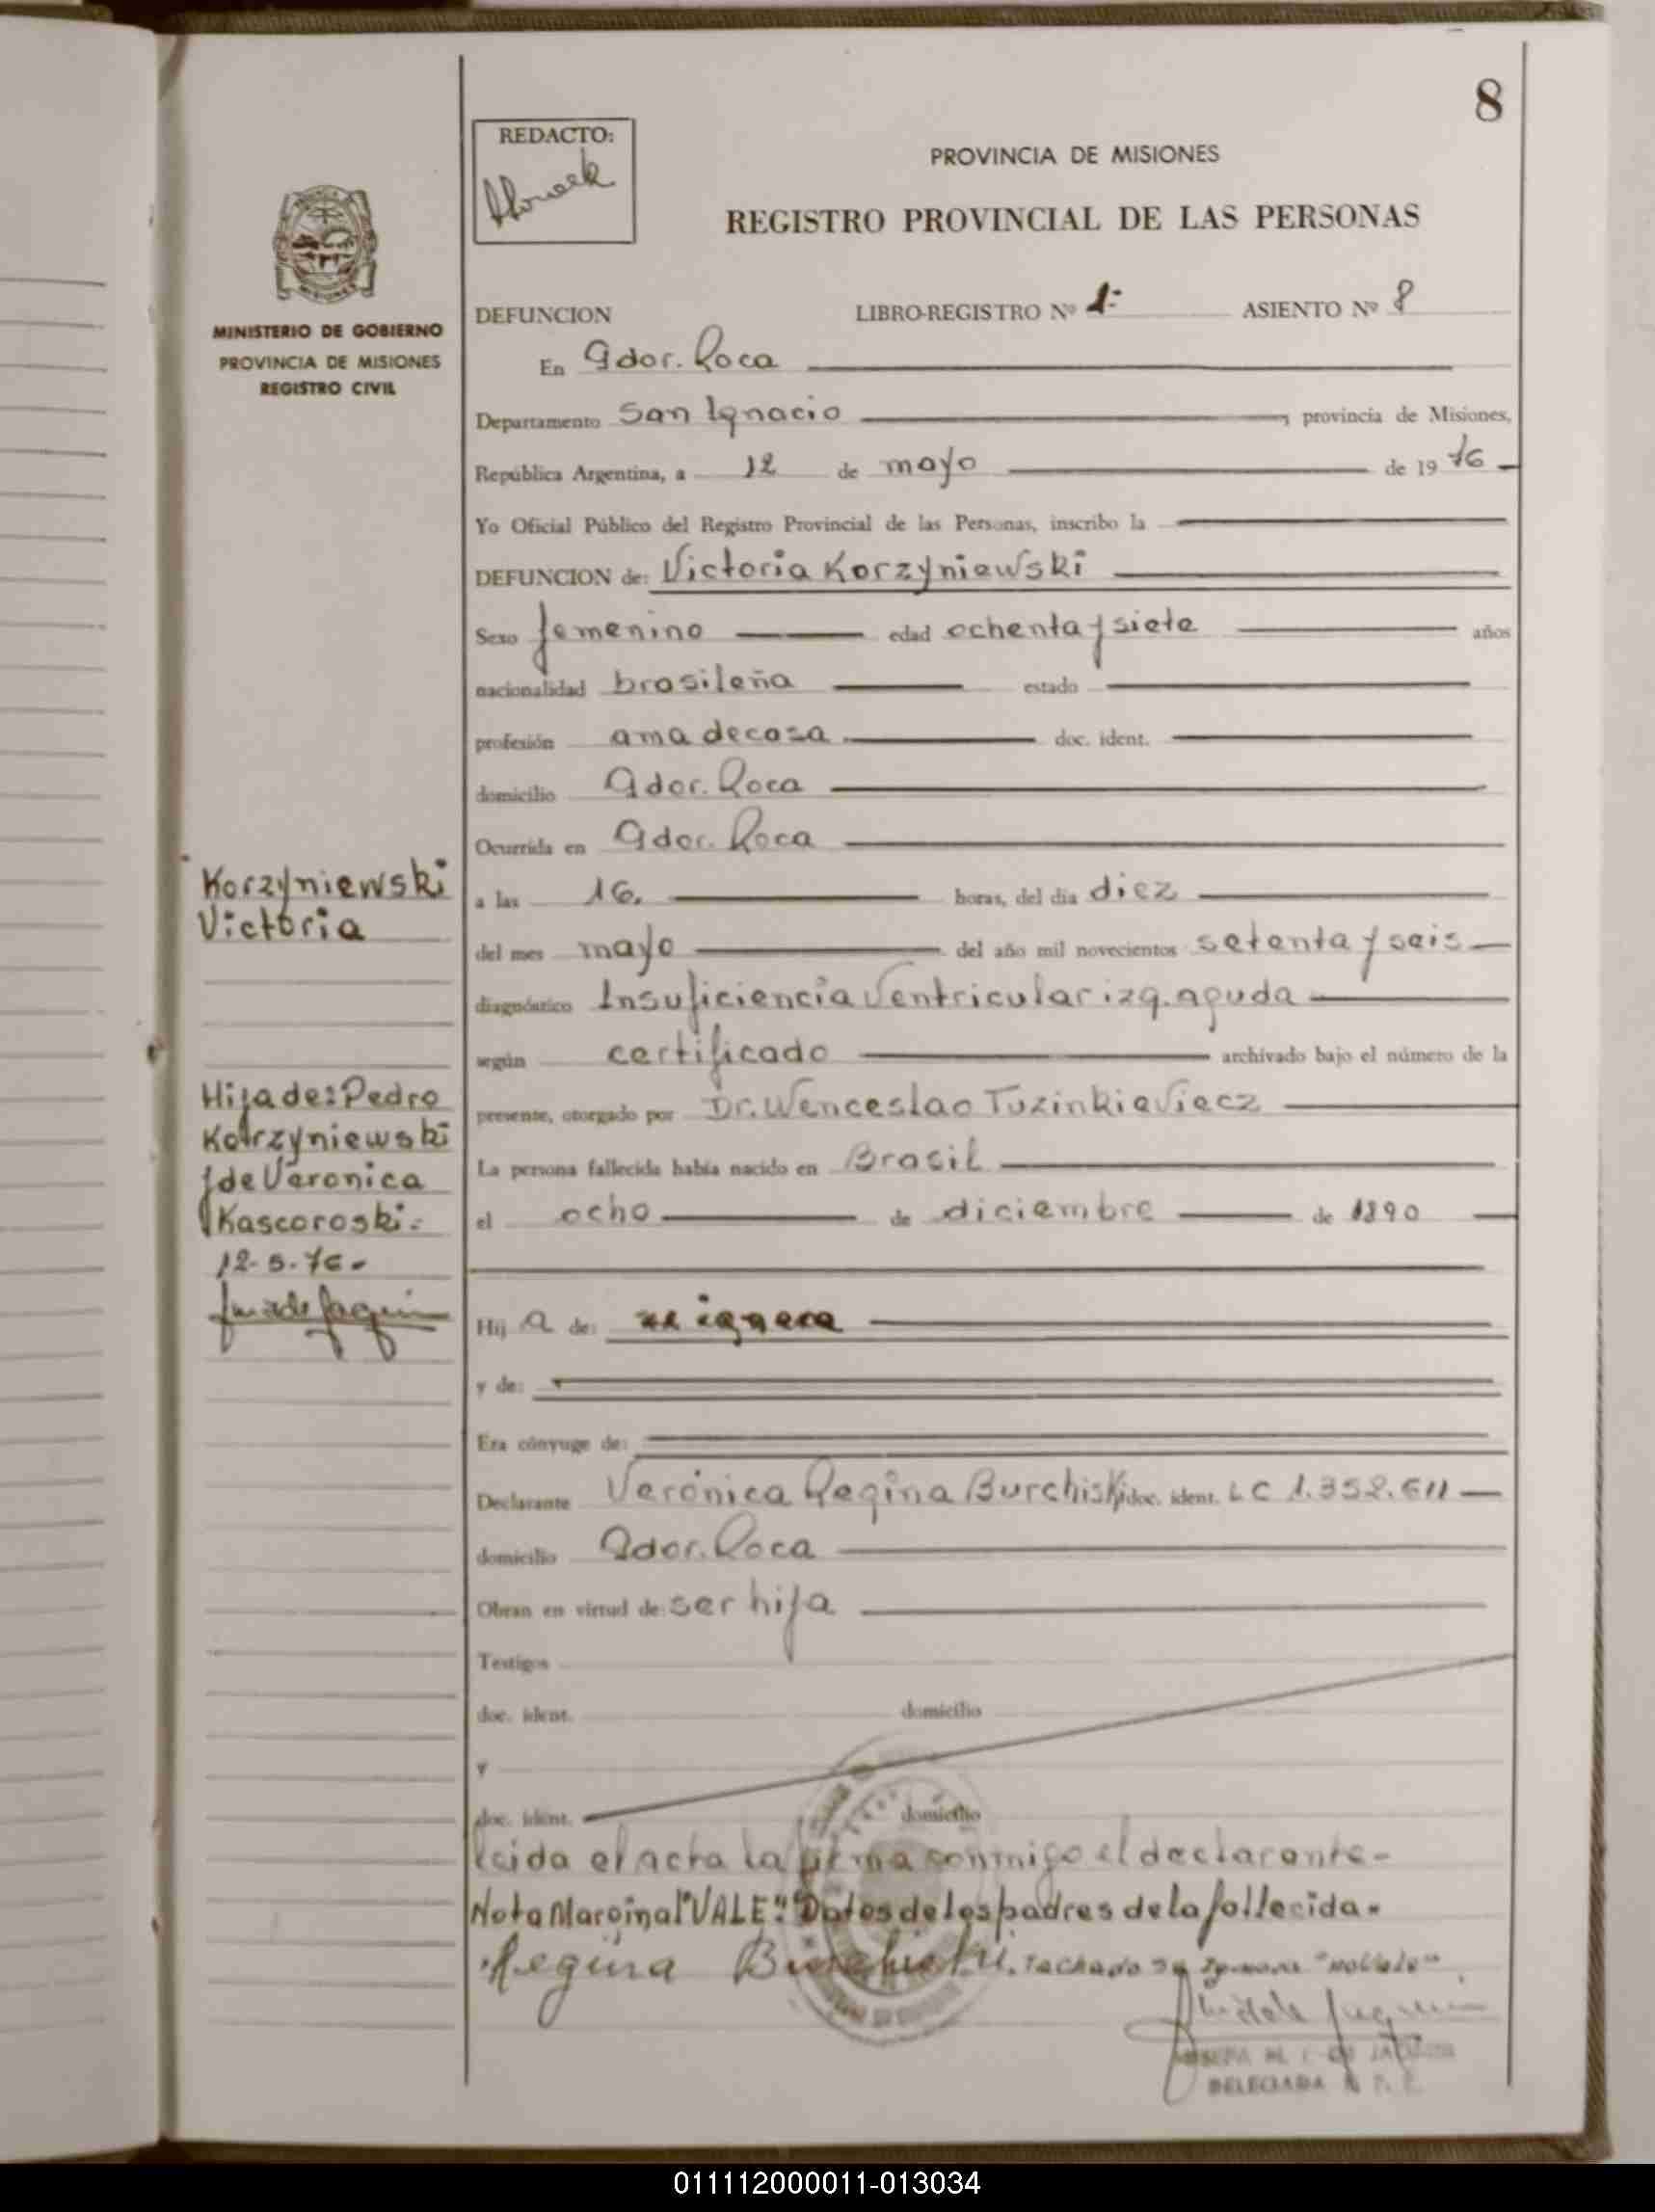 8
REDACTO:
PROVINCIA DE MISIONES
REGISTRO PROVINCIAL DE LAS PERSONAS
MINISTERIO DE GOBIERNO
PROVINCIA DE MISIONES
REGISTRO CIVIL
DEFUNCION LIBRO-REGISTRO Nº 1- ASIENTO Nº 8
En Gdor. Roca
Departamento San Ignacio, provincia de Misiones,
República Argentina, a 12 de mayo de 1976
Yo Oficial Público del Registro Provincial de las Personas, inscribo la
DEFUNCION de: Victoria Korzyniewski
Sexo femenino edad ochenta y siete años
nacionalidad brasileña estado
profesión ama de casa doc. ident.
domicilio Gdor. Roca
Ocurrida en Gdor. Roca
a las 16. horas, del día diez
del mes mayo del año mil novecientos setenta y seis
diagnóstico Insuficiencia Ventricular izq. aguda
según certificado archivado bajo el número de la
presente, otorgado por Dr. Wenceslao Tuzinkieviecz
La persona fallecida había nacido en Brasil
el ocho de diciembre de 1890
Korzyniewski
Victoria
Hija de: Pedro
Korzyniewski
y de Veronica
Kascoroski.
12-5-76-
Hij a de: se ignora
y de:
Era cónyuge de:
Declarante Verónica Regina Burchiski doc. ident. LC 1.352.611
domicilio Gdor. Roca
Obran en virtud de: ser hija
Testigos
doc. ident. domicilio
y
doc. ident. domicilio
Leida el acta la firma conmigo el declarante-
Nota Marginal "VALE": "Datos de los padres de la fallecida-
Regina Burchiski. Tachado se ignora "no vale"
DELEGADA
011112000011-013034